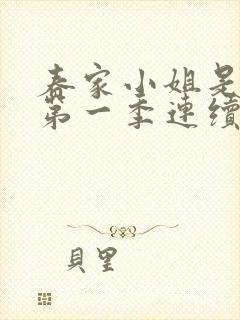 春家小姐是
第一季連續
貝里